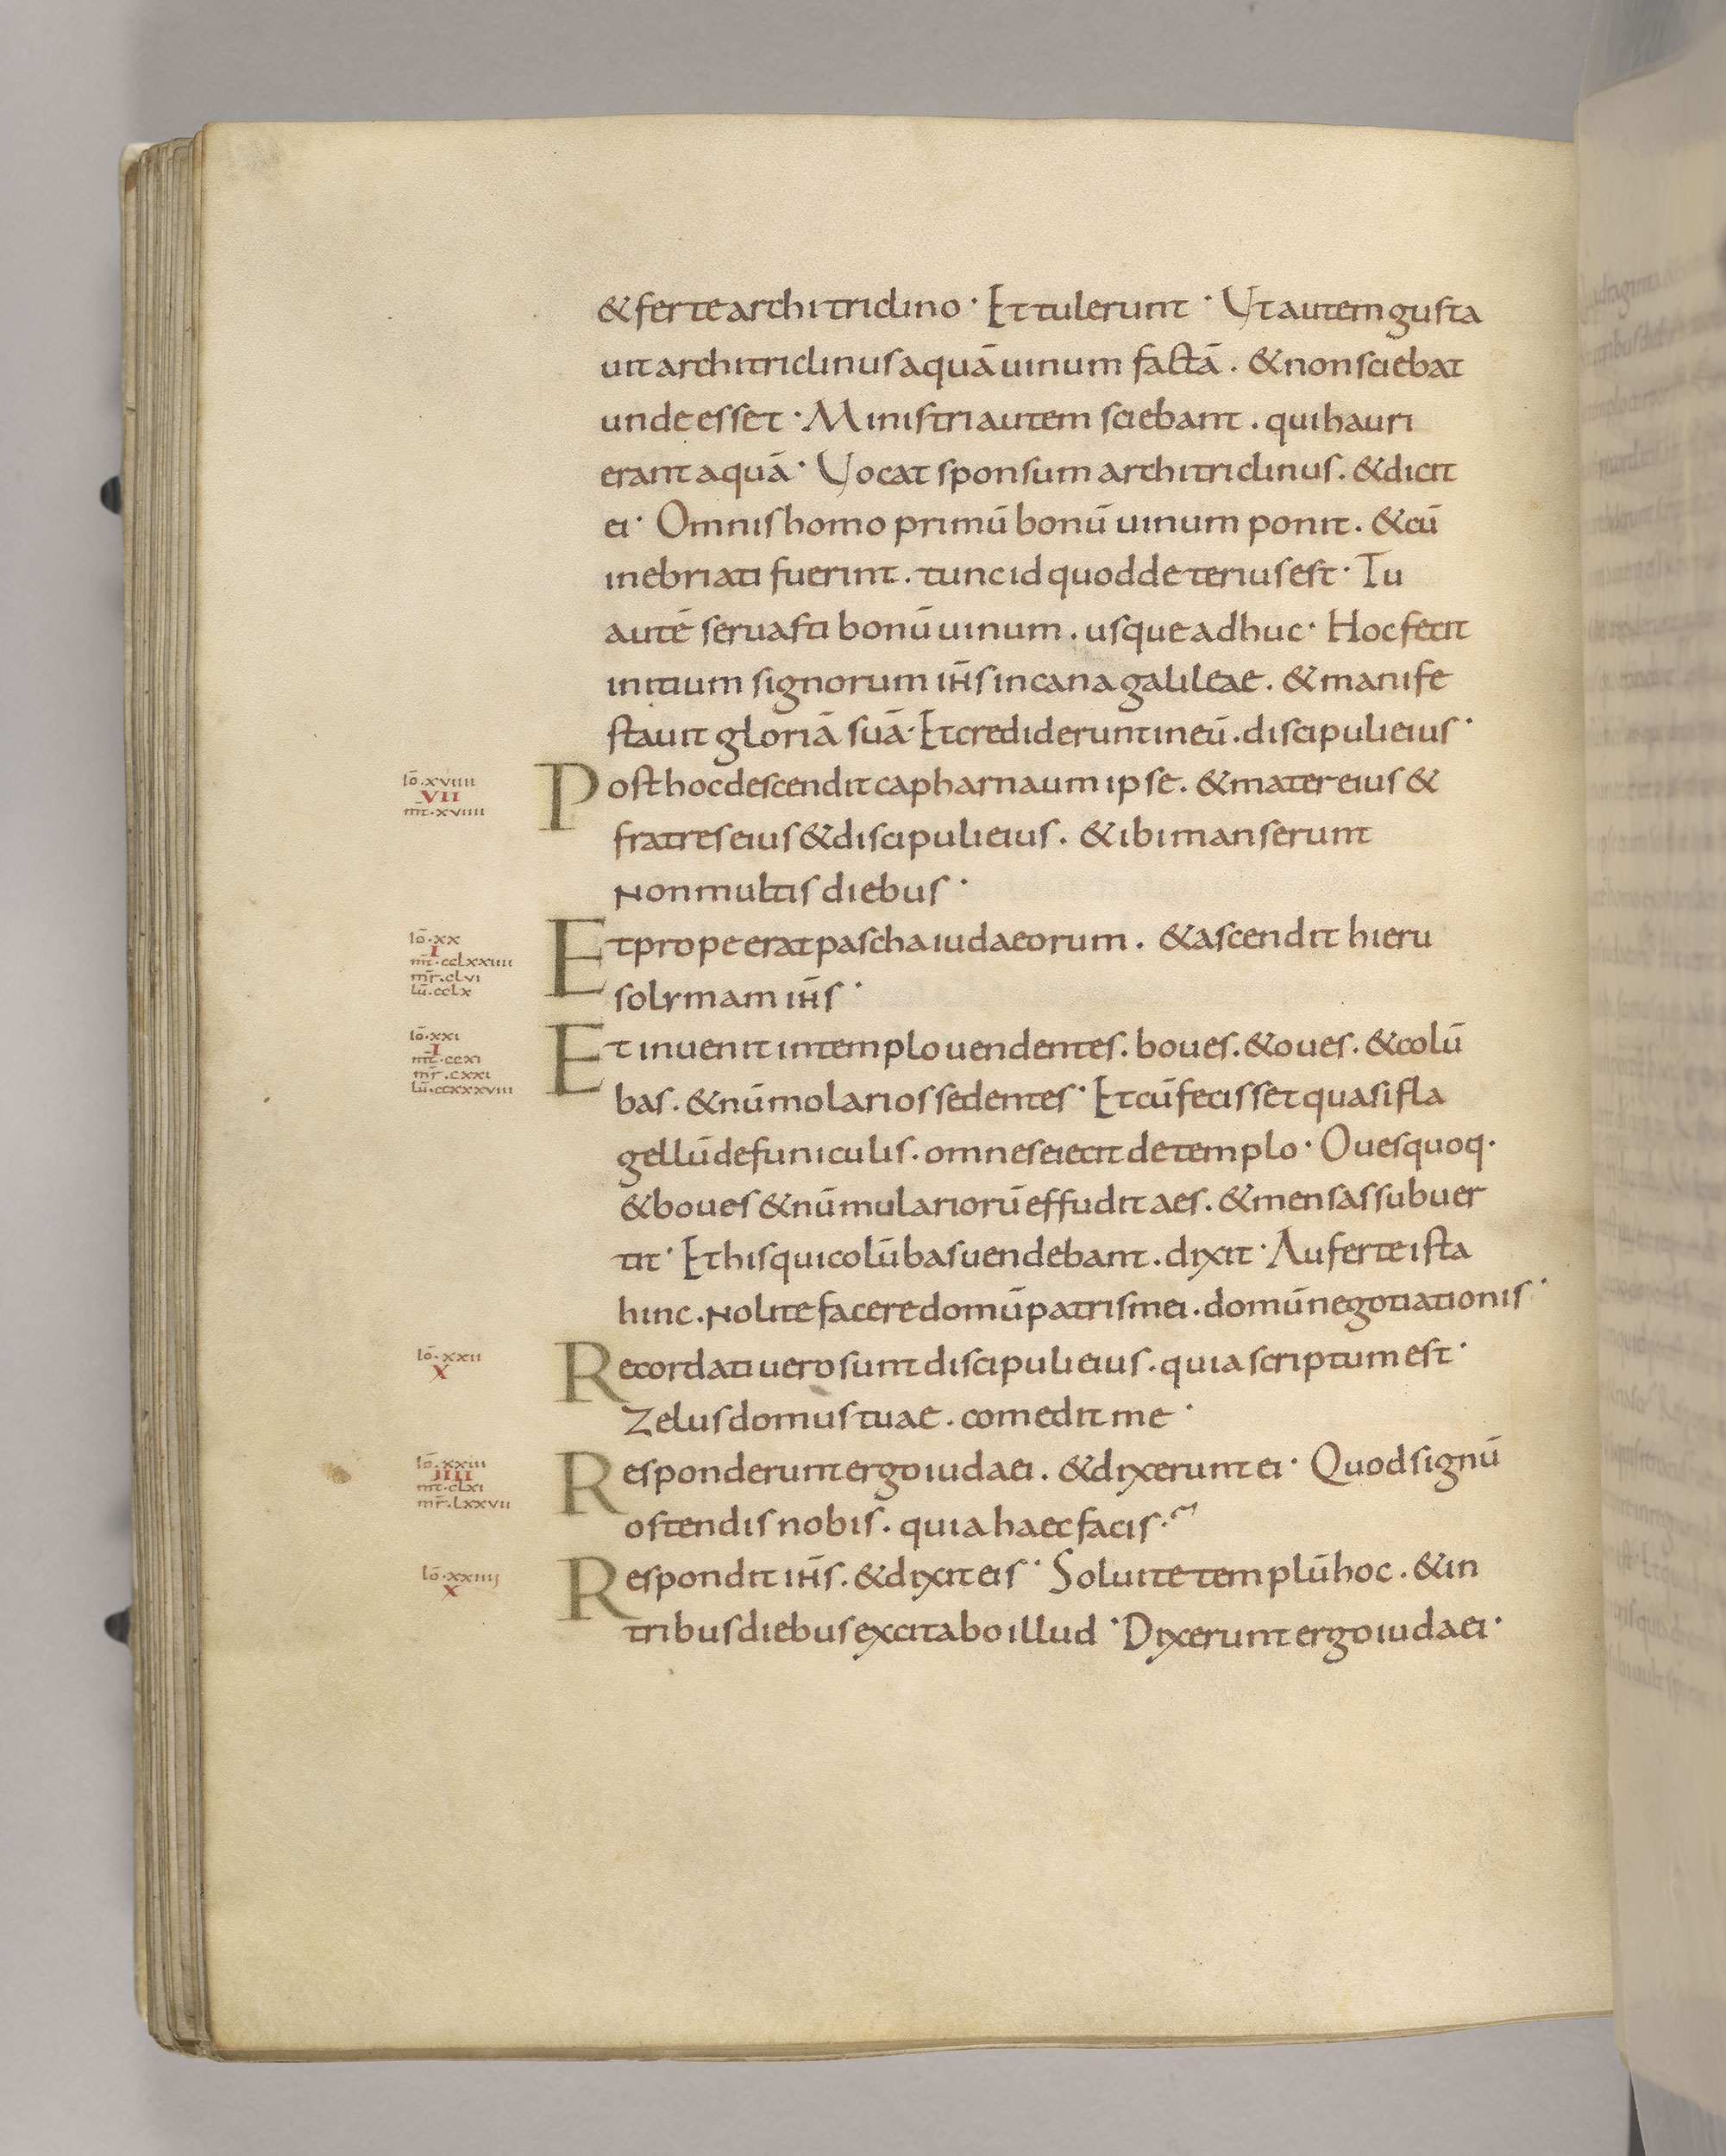 & ferte architriclino · Et tulerunt · Ut autem gusta
uit architriclinus aquā uinum factā . & non sciebat
unde esset · Ministri autem sciebant . qui hauri
erant aquā · Uocat sponsum architriclinus . & dicit
ei · Omnis homo primū bonū uinum ponit . & cū
inebriati fuerint . tunc id quod deterius est · Tu
autē seruasti bonū uinum . usque adhuc · Hoc fecit
initium signorum ihs̄ in cana galileae . & manife
stauit gloriā suā · Et crediderunt in eū . discipuli eius ·
iō · xviiii
VII
mt̄ · xviiii
Post hoc descendit capharnaum ipse . & mater eius &
fratres eius & discipuli eius . & ibi manserunt
non multis diebus ·
iō · xx
I
mt̄ · cclxxiiii
mr̄ . clvi
lū . cclx
Et prope erat pascha iudaeorum . & ascendit hieru
solymam ihs̄ ·
iō · xxi
I
mt̄ · ccxi
mr̄ . cxxi
lū . ccxxxviii
Et inuenit in templo uendentes . boues . & oues . & colū
bas . & nūmolarios sedentes · Et cū fecisset quasi fla
gellū de funiculis . omnes eiecit de templo · Oues quoq·
& boues & nūmulariorū effudit aes . & mensas subuer
tit · Et his qui colūbas uendebant . dixit · Auferte ista
hinc . nolite facere domū patris mei . domū negotiationis ·
iō · xxii
X
Recordati uero sunt discipuli eius . quia scriptum est ·
Zelus domus tuae . comedit me ·
iō . xxiii
IIII
mt̄ . clxi
mr̄ . lxxvii
Responderunt ergo iudaei . & dixerunt ei · Quod signū
ostendis nobis . quia haec facis ·
iō · xxiiij
X
Respondit ihs̄ . & dixit eis · Soluite templū hoc . & in
tribus diebus excitabo illud · Dixerunt ergo iudaei ·